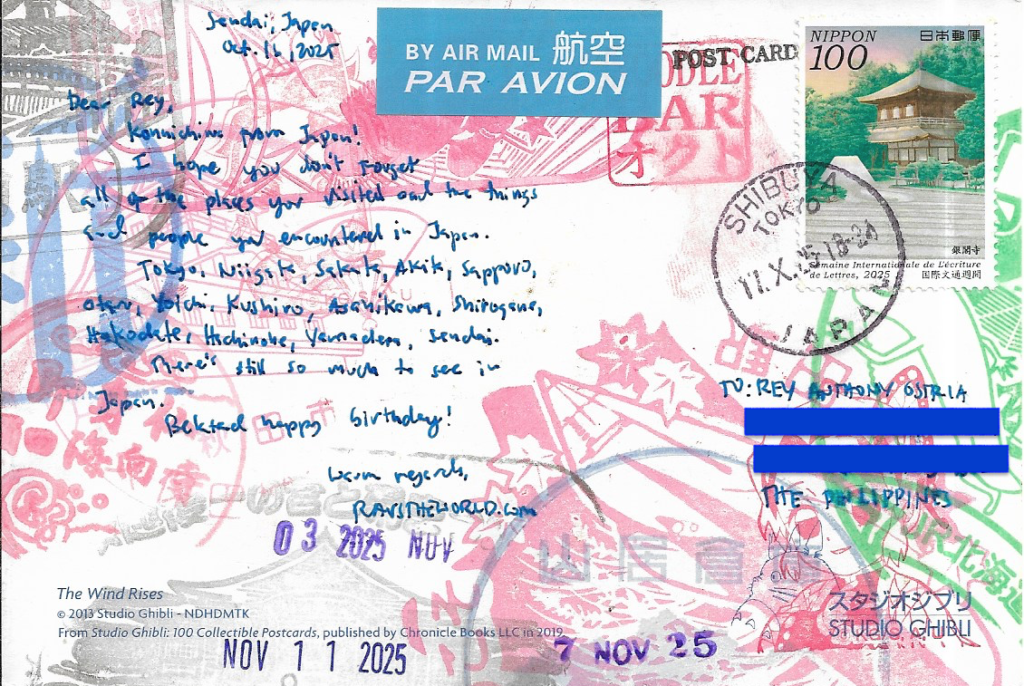 Sendai, Japan
Oct. 16, 2025
BY AIR MAIL 航空
PAR AVION
POST CARD
NIPPON 日本郵便
100
銀閣寺
Semaine Internationale de L'écriture
de Lettres, 2025 国際文通週間
SHIBUYA
TOKYO
17.X.25.18-24
JAPAN
BAR
オクト
Dear Rey,
Konnichiwa from Japan!
I hope you don't forget
all of the places you visited and the things
and people you encountered in Japan.
Tokyo, Niigata, Sakata, Akita, Sapporo,
Otaru, Yoichi, Kushiro, Asahikawa, Shirogane,
Hakodate, Hachinohe, Yamadera, Sendai.
There's still so much to see in
Japan.
Belated happy birthday!
Warm regards,
RAVSTHEWORLD.com
TO: REY ANTHONY OSTRIA
THE PHILIPPINES
03 2025 NOV
山居倉
JR北海道
The Wind Rises
© 2013 Studio Ghibli - NDHDMTK
From Studio Ghibli: 100 Collectible Postcards, published by Chronicle Books LLC in 2019.
スタジオジブリ
STUDIO GHIBLI
NOV 11 2025
7 NOV 25